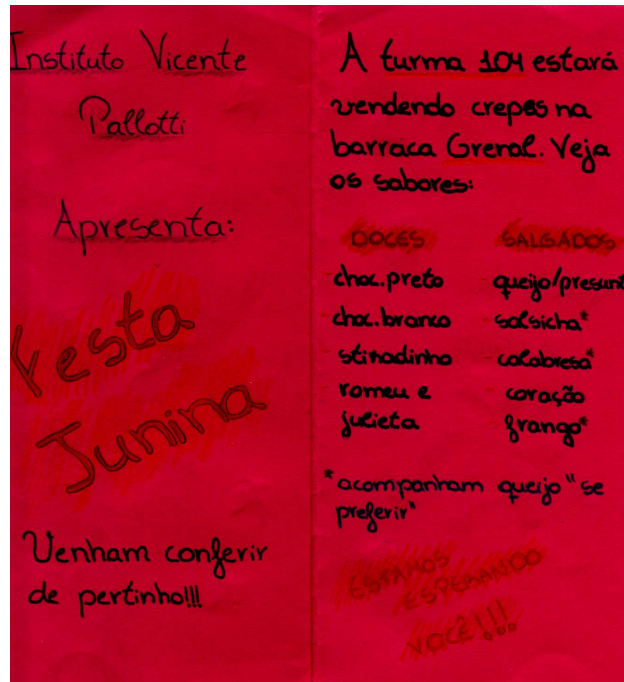 Instituto Vicente
Pallotti
Apresenta:
Festa
Junina
Venham conferir
de pertinho!!!
A turma 104 estará
vendendo crepes na
barraca Grenal. Veja
os sabores:
DOCES SALGADOS
choc.preto queijo/presunt
choc.branco salsicha*
stikadinho calabresa*
romeu e coração
julieta frango*
*acompanham queijo "se
preferir"
ESTAMOS
ESPERANDO
VOCÊ!!!